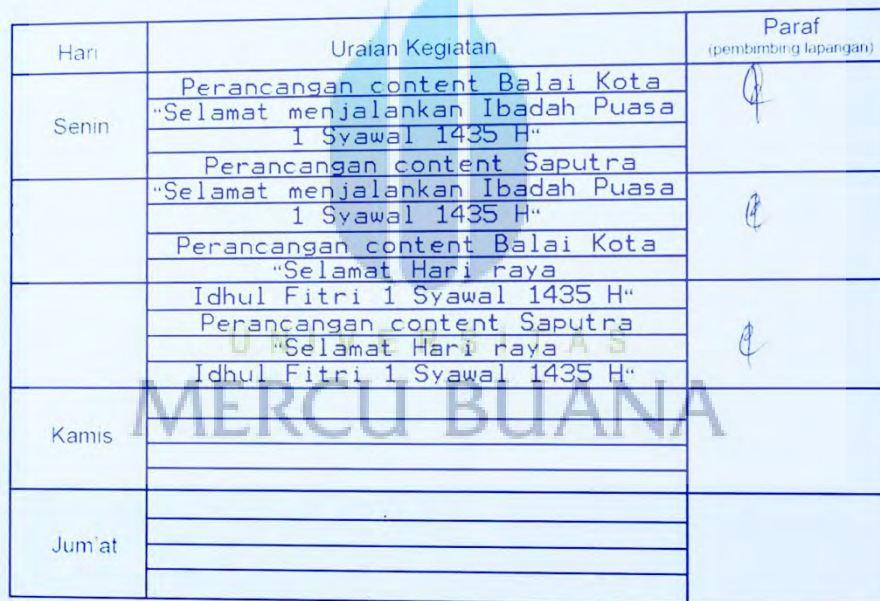 Hari Uraian Kegiatan Paraf
(pembimbing lapangan)
Senin
Perancangan content Balai Kota
"Selamat menjalankan Ibadah Puasa
1 Syawal 1435 H"
Perancangan content Saputra
"Selamat menjalankan Ibadah Puasa
1 Syawal 1435 H"
Perancangan content Balai Kota
"Selamat Hari raya
Idhul Fitri 1 Syawal 1435 H"
Perancangan content Saputra
"Selamat Hari raya
Idhul Fitri 1 Syawal 1435 H"
UNIVERSITAS
MERCU BUANA
Kamis
Jum'at